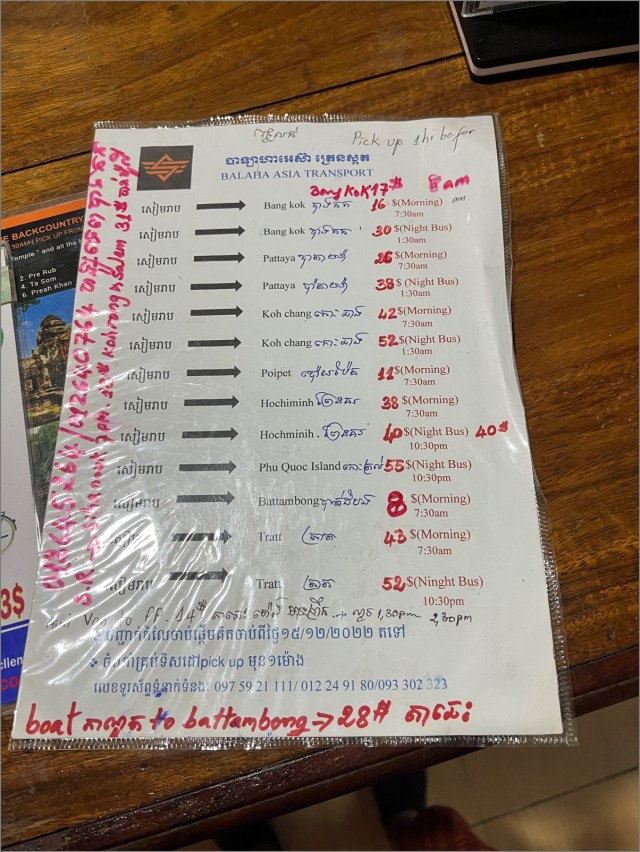 Pick up 1hr befor
បាឡាហាអេស៊ា ត្រេនស្ផត
BALAHA ASIA TRANSPORT
Bang kok 17$ 8am
សៀមរាប Bang kok បាងកក 16 $(Morning) am
7:30am
សៀមរាប Bang kok បាងកក 30 $(Night Bus)
1:30am
សៀមរាប Pattaya 26 $(Morning)
7:30am
សៀមរាប Pattaya 38 $(Night Bus)
1:30am
សៀមរាប Koh chang កោះឆាង 42 $(Morning)
7:30am
សៀមរាប Koh chang កោះឆាង 52 $(Night Bus)
1:30am
សៀមរាប Poipet ប៉ោយប៉ែត 11 $(Morning)
7:30am
សៀមរាប Hochiminh ព្រៃនគរ 38 $(Morning)
7:30am
សៀមរាប Hochminih ព្រៃនគរ 40 $(Night Bus) 40$
10:30pm
សៀមរាប Phu Quoc Island កោះត្រល់ 55 $(Night Bus)
10:30pm
សៀមរាប Battambong បាត់ដំបង 8 $(Morning)
7:30am
សៀមរាប Tratt ត្រាត 43 $(Morning)
7:30am
សៀមរាប Tratt ត្រាត 52 $(Ninght Bus)
10:30pm
Van to P.P. 14$ 1,30pm 2,30pm
បញ្ជាក់តំលៃចាប់ផ្តើបគិតចាប់ពីថ្ងៃ១៥/១២/២០២២ តទៅ
ចំណាគ្រប់ទិសដៅpick up មុន១ម៉ោង
លេខទូរស័ព្ទទំនាក់ទំនង: 097 59 21 111/ 012 24 91 80/093 302 323
boat កាណូត to battambong → 28$
BACKCOUNTRY
2. Pre Rub
4. Ta Som
6. Preah Khan
3$